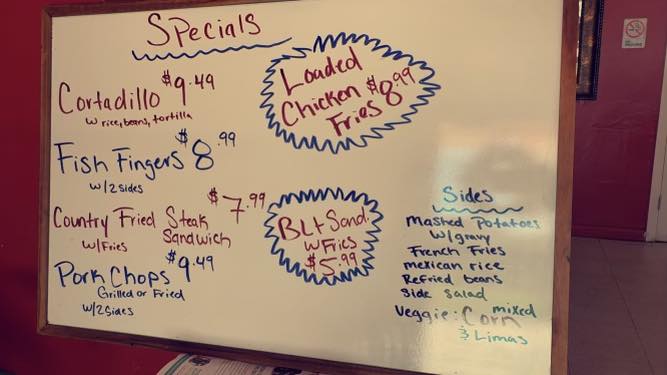 Specials
Cortadillo $9.49
w rice, beans, tortilla
Fish Fingers $8.99
w/2 sides
Country Fried Steak $7.99
w/Fries Sandwich
Pork Chops $9.49
Grilled or Fried
w/2 sides
Loaded
Chicken $8.99
Fries
BLT Sand.
w Fries
$5.99
Sides
Mashed Potatoes
w/gravy
French Fries
mexican rice
Refried beans
Side Salad
Veggie: Corn mixed
& Limas